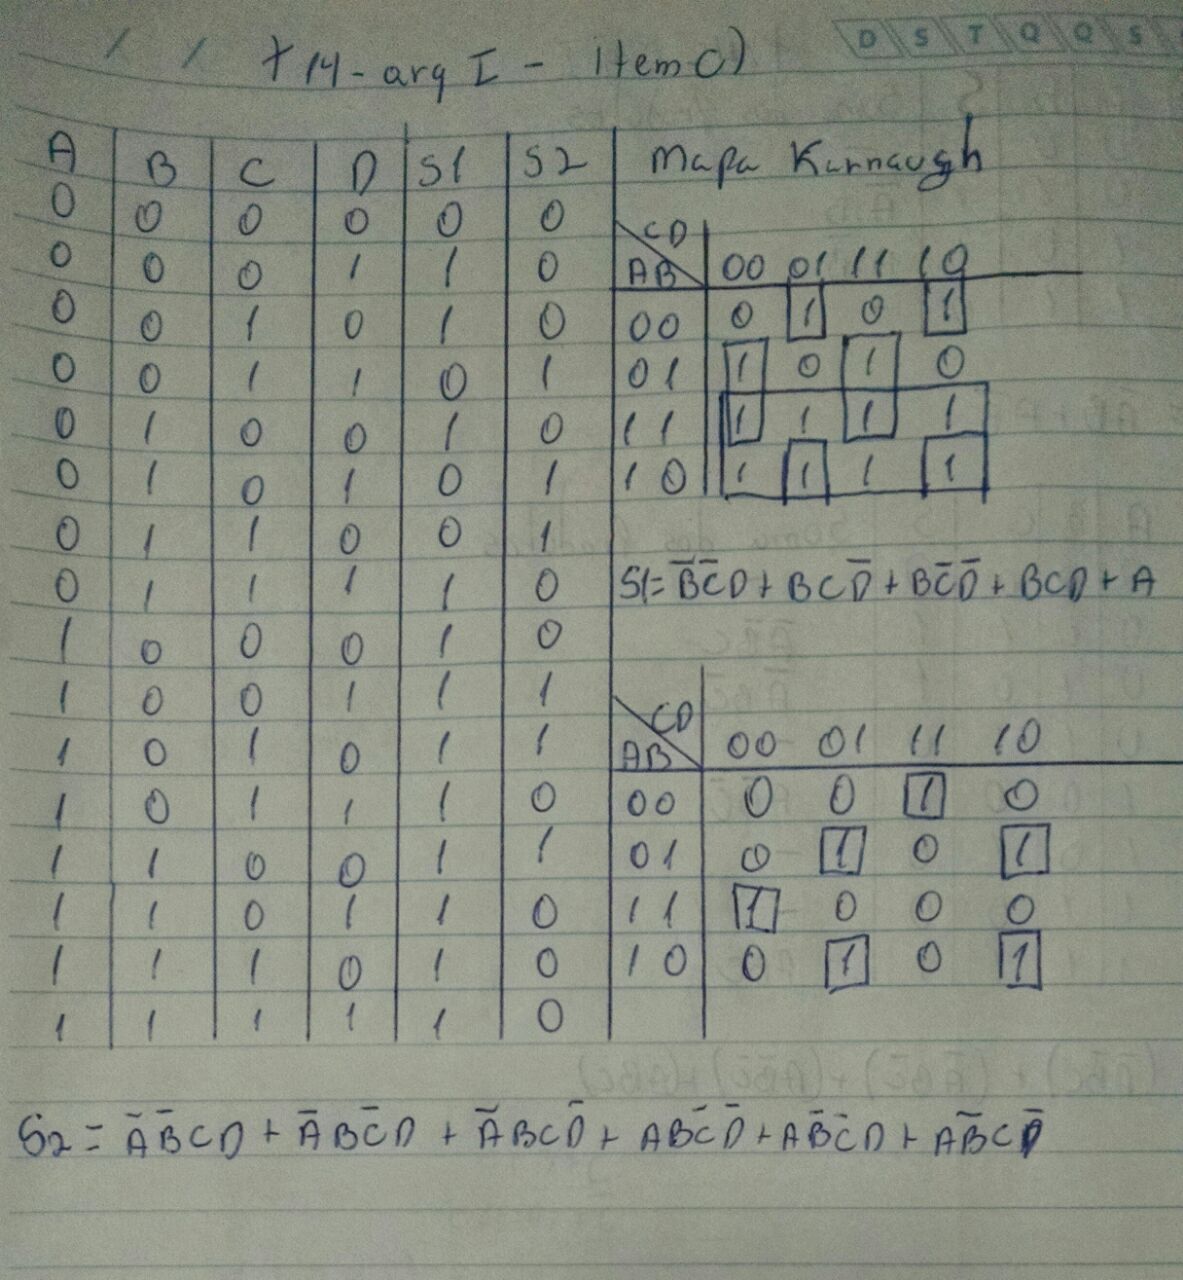 D S T Q Q S
T14 - arq I - item C)
A B C D S1 S2 Mapa Karnaugh
0 0 0 0 0 0
0 0 0 1 1 0
0 0 1 0 1 0
0 0 1 1 0 1
0 1 0 0 1 0
0 1 0 1 0 1
0 1 1 0 0 1
0 1 1 1 1 0
1 0 0 0 1 0
1 0 0 1 1 1
1 0 1 0 1 1
1 0 1 1 1 0
1 1 0 0 1 1
1 1 0 1 1 0
1 1 1 0 1 0
1 1 1 1 1 0
CD
AB 00 01 11 10
00 0 1 0 1
01 1 0 1 0
11 1 1 1 1
10 1 1 1 1
S1 = B̅C̅D + BCD̅ + BC̅D̅ + BCD + A
CD
AB 00 01 11 10
00 0 0 1 0
01 0 1 0 1
11 1 0 0 0
10 0 1 0 1
S2 = A̅B̅CD + A̅BC̅D + A̅BCD̅ + ABC̅D̅ + AB̅C̅D + AB̅CD̅